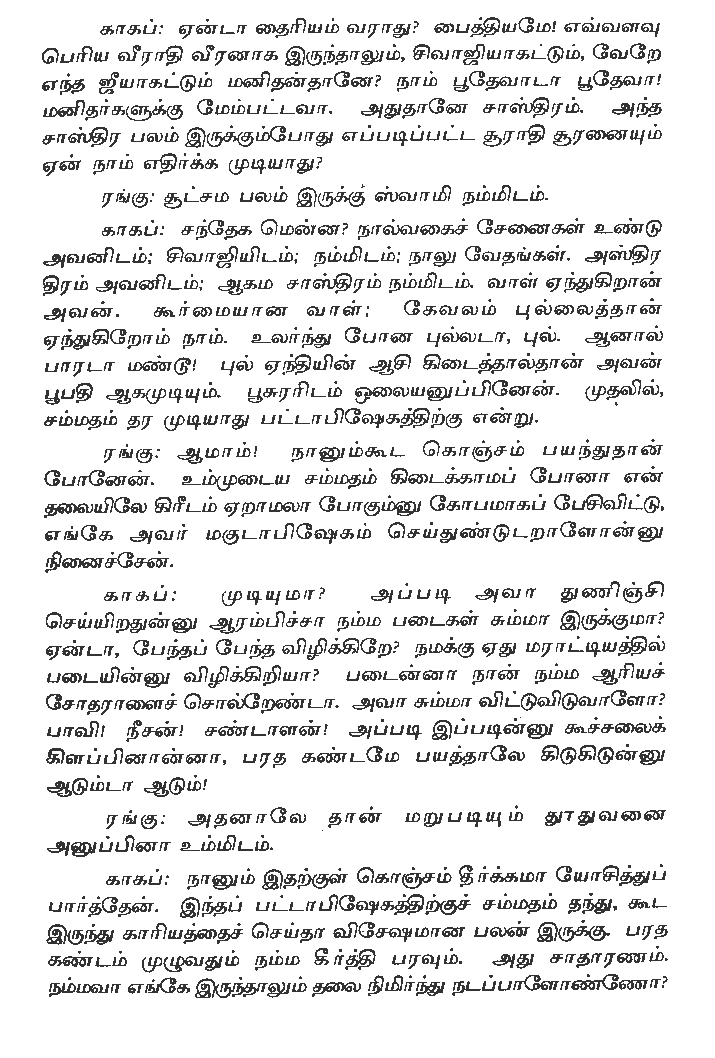 காகப்: ஏன்டா தைரியம் வராது? பைத்தியமே! எவ்வளவு
பெரிய வீராதி வீரனாக இருந்தாலும், சிவாஜியாகட்டும், வேறே
எந்த ஜீயாகட்டும் மனிதன்தானே? நாம் பூதேவாடா பூதேவா!
மனிதர்களுக்கு மேம்பட்டவா. அதுதானே சாஸ்திரம். அந்த
சாஸ்திர பலம் இருக்கும்போது எப்படிப்பட்ட சூராதி சூரனையும்
ஏன் நாம் எதிர்க்க முடியாது?
ரங்கு: சூட்சம பலம் இருக்கு ஸ்வாமி நம்மிடம்.
காகப்: சந்தேக மென்ன? நால்வகைச் சேனைகள் உண்டு
அவனிடம்; சிவாஜியிடம்; நம்மிடம்; நாலு வேதங்கள். அஸ்திர
திரம் அவனிடம்; ஆகம சாஸ்திரம் நம்மிடம். வாள் ஏந்துகிறான்
அவன். கூர்மையான வாள்; கேவலம் புல்லைத்தான்
ஏந்துகிறோம் நாம். உலர்ந்து போன புல்லடா, புல். ஆனால்
பாரடா மண்டூ! புல் ஏந்தியின் ஆசி கிடைத்தால்தான் அவன்
பூபதி ஆகமுடியும். பூசுரரிடம் ஒலையனுப்பினேன். முதலில்,
சம்மதம் தர முடியாது பட்டாபிஷேகத்திற்கு என்று.
ரங்கு: ஆமாம்! நானும்கூட கொஞ்சம் பயந்துதான்
போனேன். உம்முடைய சம்மதம் கிடைக்காமப் போனா என்
தலையிலே கிரீடம் ஏறாமலா போகும்னு கோபமாகப் பேசிவிட்டு,
எங்கே அவர் மகுடாபிஷேகம் செய்துண்டுடறாளோன்னு
நினைச்சேன்.
காகப்: முடியுமா? அப்படி அவா துணிஞ்சி
செய்யிறதுன்னு ஆரம்பிச்சா நம்ம படைகள் சும்மா இருக்குமா?
ஏன்டா, பேந்தப் பேந்த விழிக்கிறே? நமக்கு ஏது மராட்டியத்தில்
படையின்னு விழிக்கிறியா? படைன்னா நான் நம்ம ஆரியச்
சோதராளைச் சொல்றேண்டா. அவா சும்மா விட்டுவிடுவாளோ?
பாவி! நீசன்! சண்டாளன்! அப்படி இப்படின்னு கூச்சலைக்
கிளப்பினான்னா, பரத கண்டமே பயத்தாலே கிடுகிடுன்னு
ஆடும்டா ஆடும்!
ரங்கு: அதனாலே தான் மறுபடியும் தூதுவனை
அனுப்பினா உம்மிடம்.
காகப்: நானும் இதற்குள் கொஞ்சம் தீர்க்கமா யோசித்துப்
பார்த்தேன். இந்தப் பட்டாபிஷேகத்திற்குச் சம்மதம் தந்து, கூட
இருந்து காரியத்தைச் செய்தா விசேஷமான பலன் இருக்கு. பரத
கண்டம் முழுவதும் நம்ம கீர்த்தி பரவும். அது சாதாரணம்.
நம்மவா எங்கே இருந்தாலும் தலை நிமிர்ந்து நடப்பாளோண்ணோ?